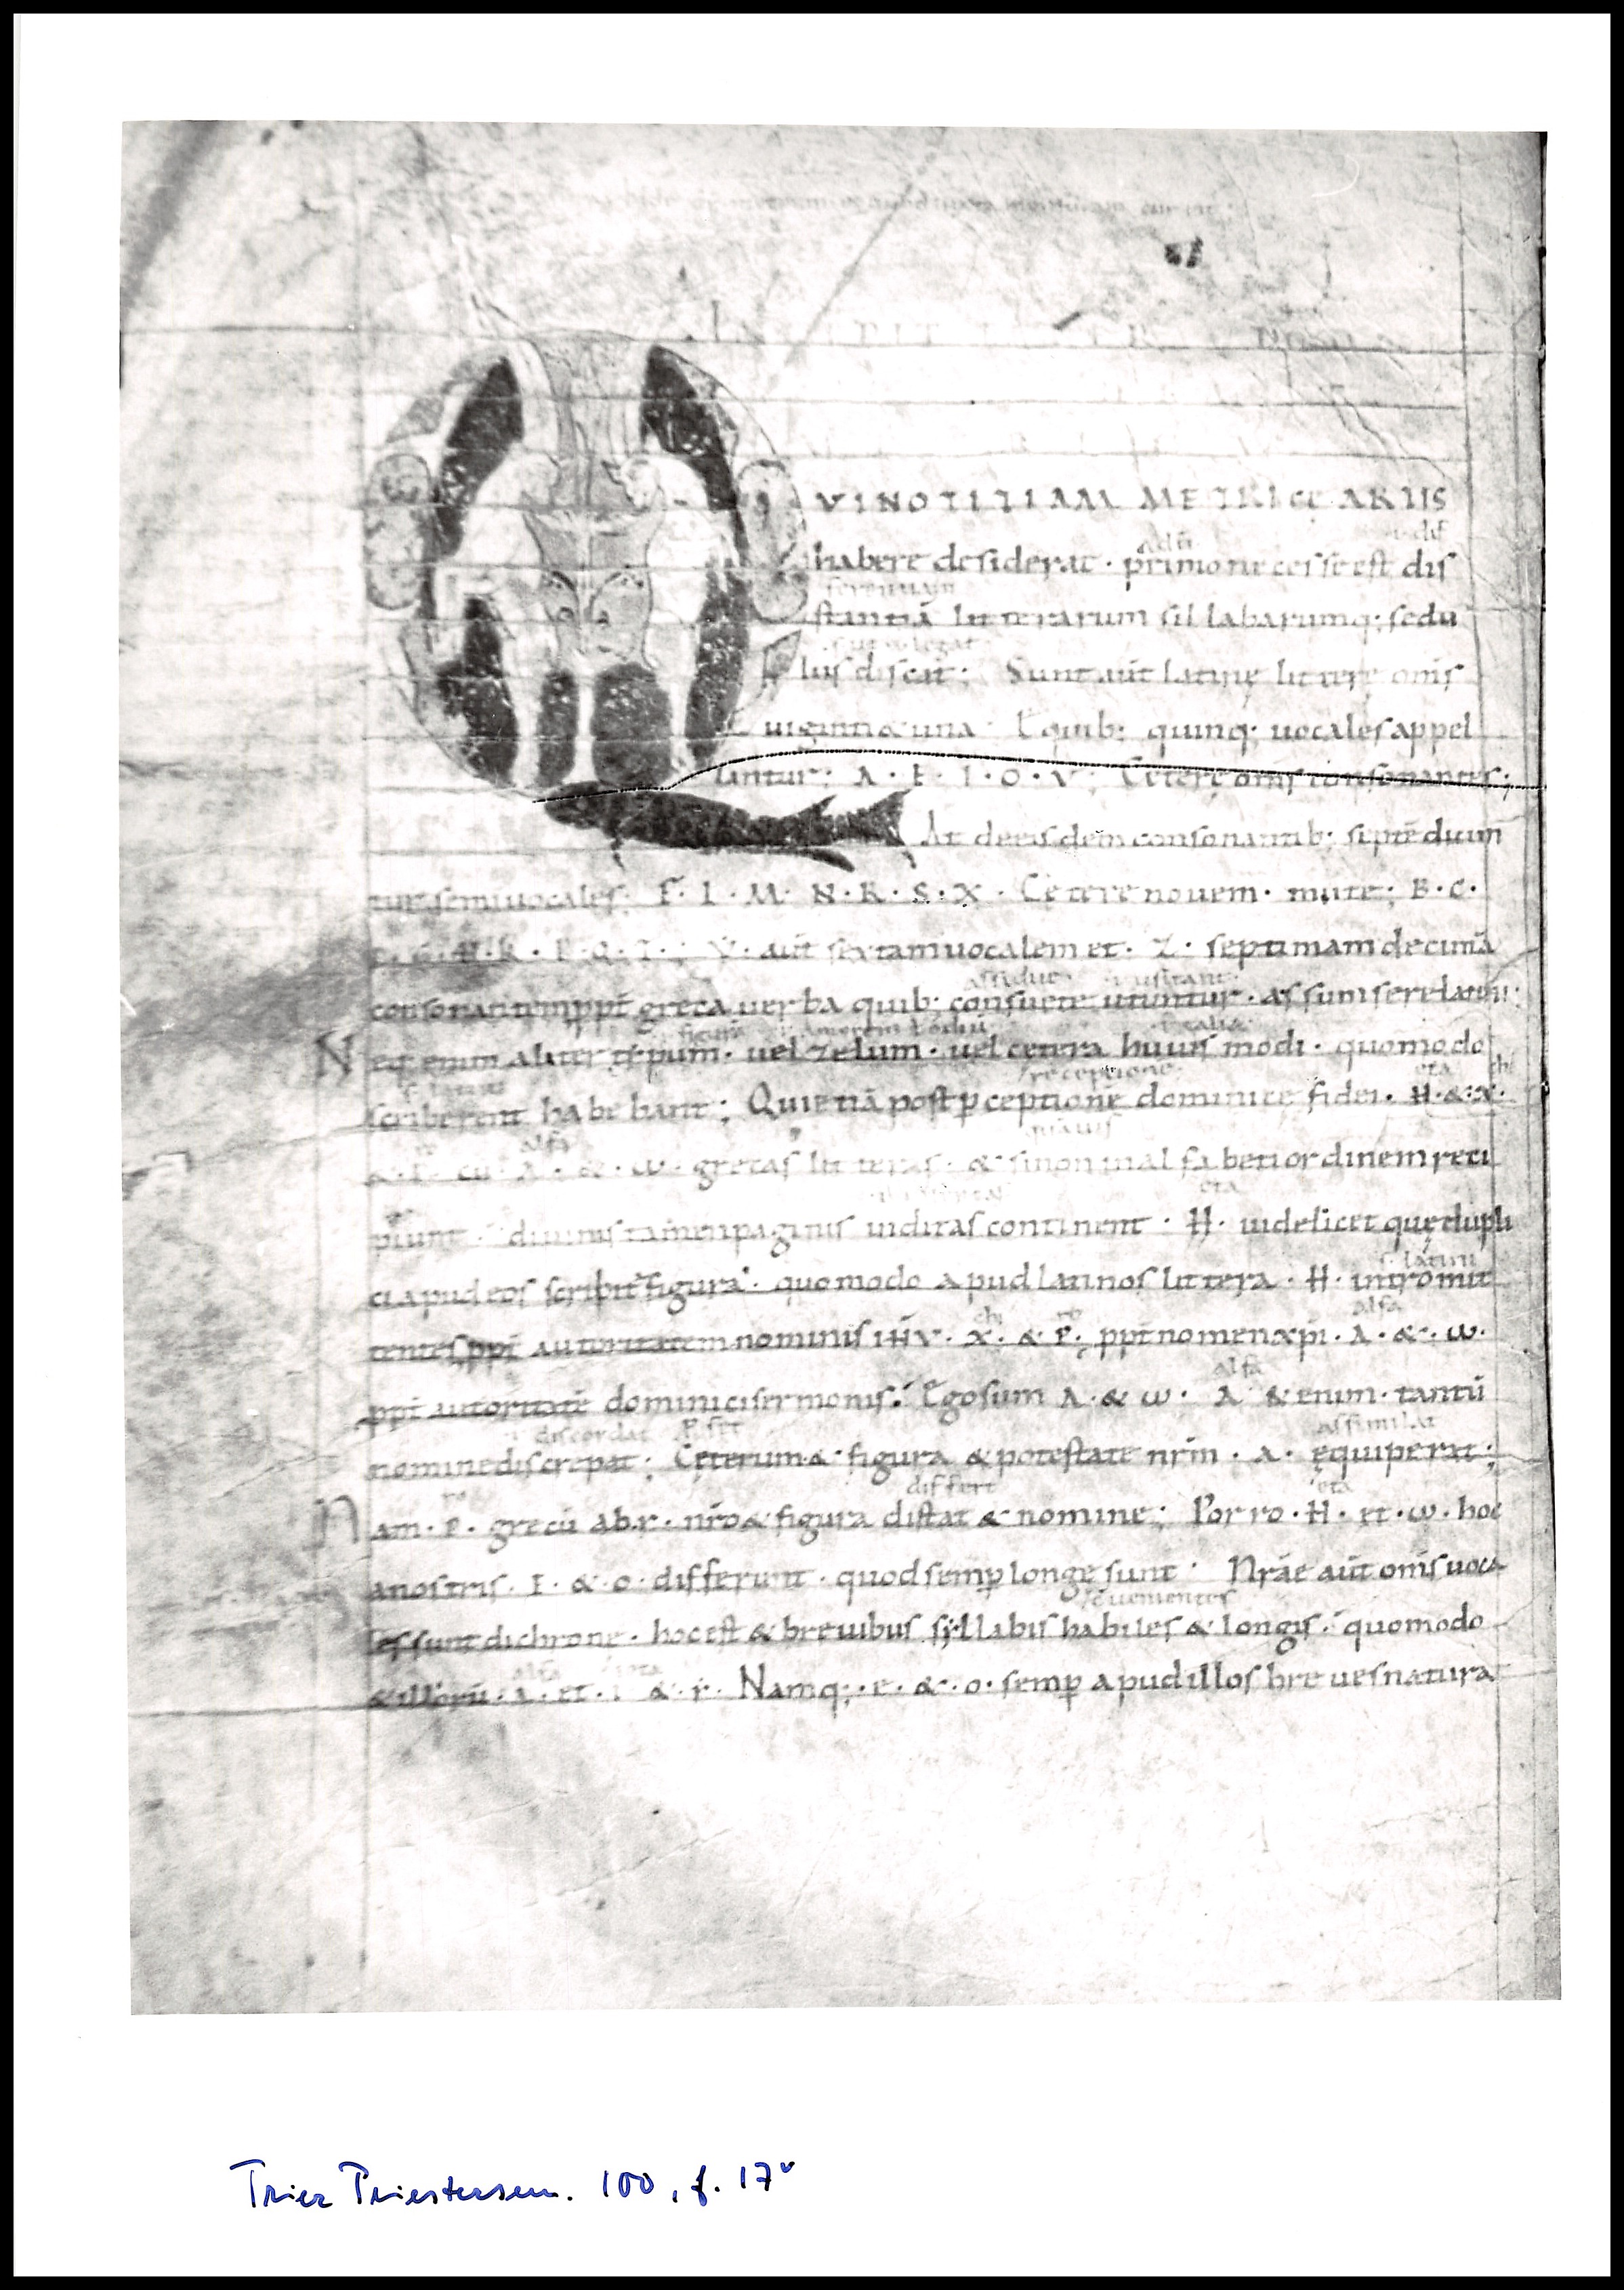 INCIPIT
VI NOTITIAM METRICĘ ARTIS
habere desiderat · primo necesse est dis
stantiā litterarum sillabarumq; sedu
lus discat ; Sunt aūt latinę litterę om̄s
uiginti & una · E quib; quinq; uocales appel
lantur ; A · E · I · O · V ; Ceterę om̄s consonantes ;
At de eisdem consonantib; septē dicun
tur semiuocales ; F · L · M · N · R · S · X · Cetere nouem · mute ; B · C ·
K · P · Q · T · ; Y · aūt sextam uocalem et · Z · septimam decimā
assidue
consonantem ppt̄ greca uerba quib; consuete utuntur · assumsere latini ;
Neq; enim aliter tẏpum · uel zelum · uel cetera huius modi · quomodo
receptione eta chi
scriberent habebant ; Qui etiā post pceptionē dominice fidei · H · & · X ·
alfa quāuis
& · P · cū · A · & · ω · grecas litteras · & si non in alfabeti ordinem reci
eta
piunt · diuinis tamen paginis inditas continent · H · uidelicet quę dupli
s latini
ci apud eos scribit figura · quomodo apud latinos littera · H · intromit
chi ro alfa
tentes ppt̄ autoritatem nominis IHV · X · & P · ppt̄ nomen xp̄i · A · & · ω ·
alfa
ppt̄ autoritatē dominici sermonis · Ego sum A · & ω · A & enim · tantū
discordat assimilat
nomine discrepat ; Ceterum & figura & potestate nr̄m · A · equiperat ;
ro differt eta
Nam · P · grecū ab · r · nr̄o & figura distat & nomine ; Porro · H · et · ω · hoc
a nostris · E · & · o · differunt · quod semp longe sunt · Nrāe aūt om̄s uoca
les sunt dichrone · hoc est & breuibus syllabis habiles & longis · quomodo
alfa iota
& illorū · A · et · I · & · Y · Namq; · e · & · o · semp apud illos breues natura
Trier Priestersem. 100, f. 17v